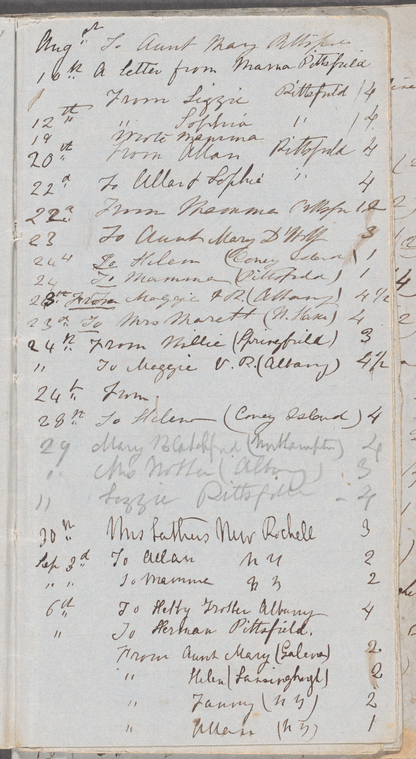 Aug To Aunt Mary Pittsfie
10th A letter from Mama Pittsfield
From Lizzie Pittsfield 4
12th " Sophia " 4
19 " Wrote Mamma
20th From Allan Pittsfield 4
22d To Allan & Sophie " 4
22d From Mamma 12
23 To Aunt Mary D'Wolf 3
24th To Helen (Coney Island) 1
24 To Mamma (Pittsfield) 1
From Maggie V.R. (Albany) 4 1/2
23d To Mrs Marett (N. Haven) 4
24th From Willie (Springfield) 3
" To Maggie V.R. (Albany) 4 1/2
24th From
28th To Helen (Coney Island) 4
29 Mary Blatchford (Northampton) 4
" Mrs (Albany) " 3
" Lizzie Pittsfield 4
30th Mrs Lathers New Rochell 3
Sep 3d To Allan N Y 2
" " To Mamma N Y 2
6th To Hetty Albany 4
" To Herman Pittsfield.
From Aunt Mary (Galena) 2
" Helen (Lansingburgh) 2
" Fanny (N Y) 2
" Allan (N Y) 1